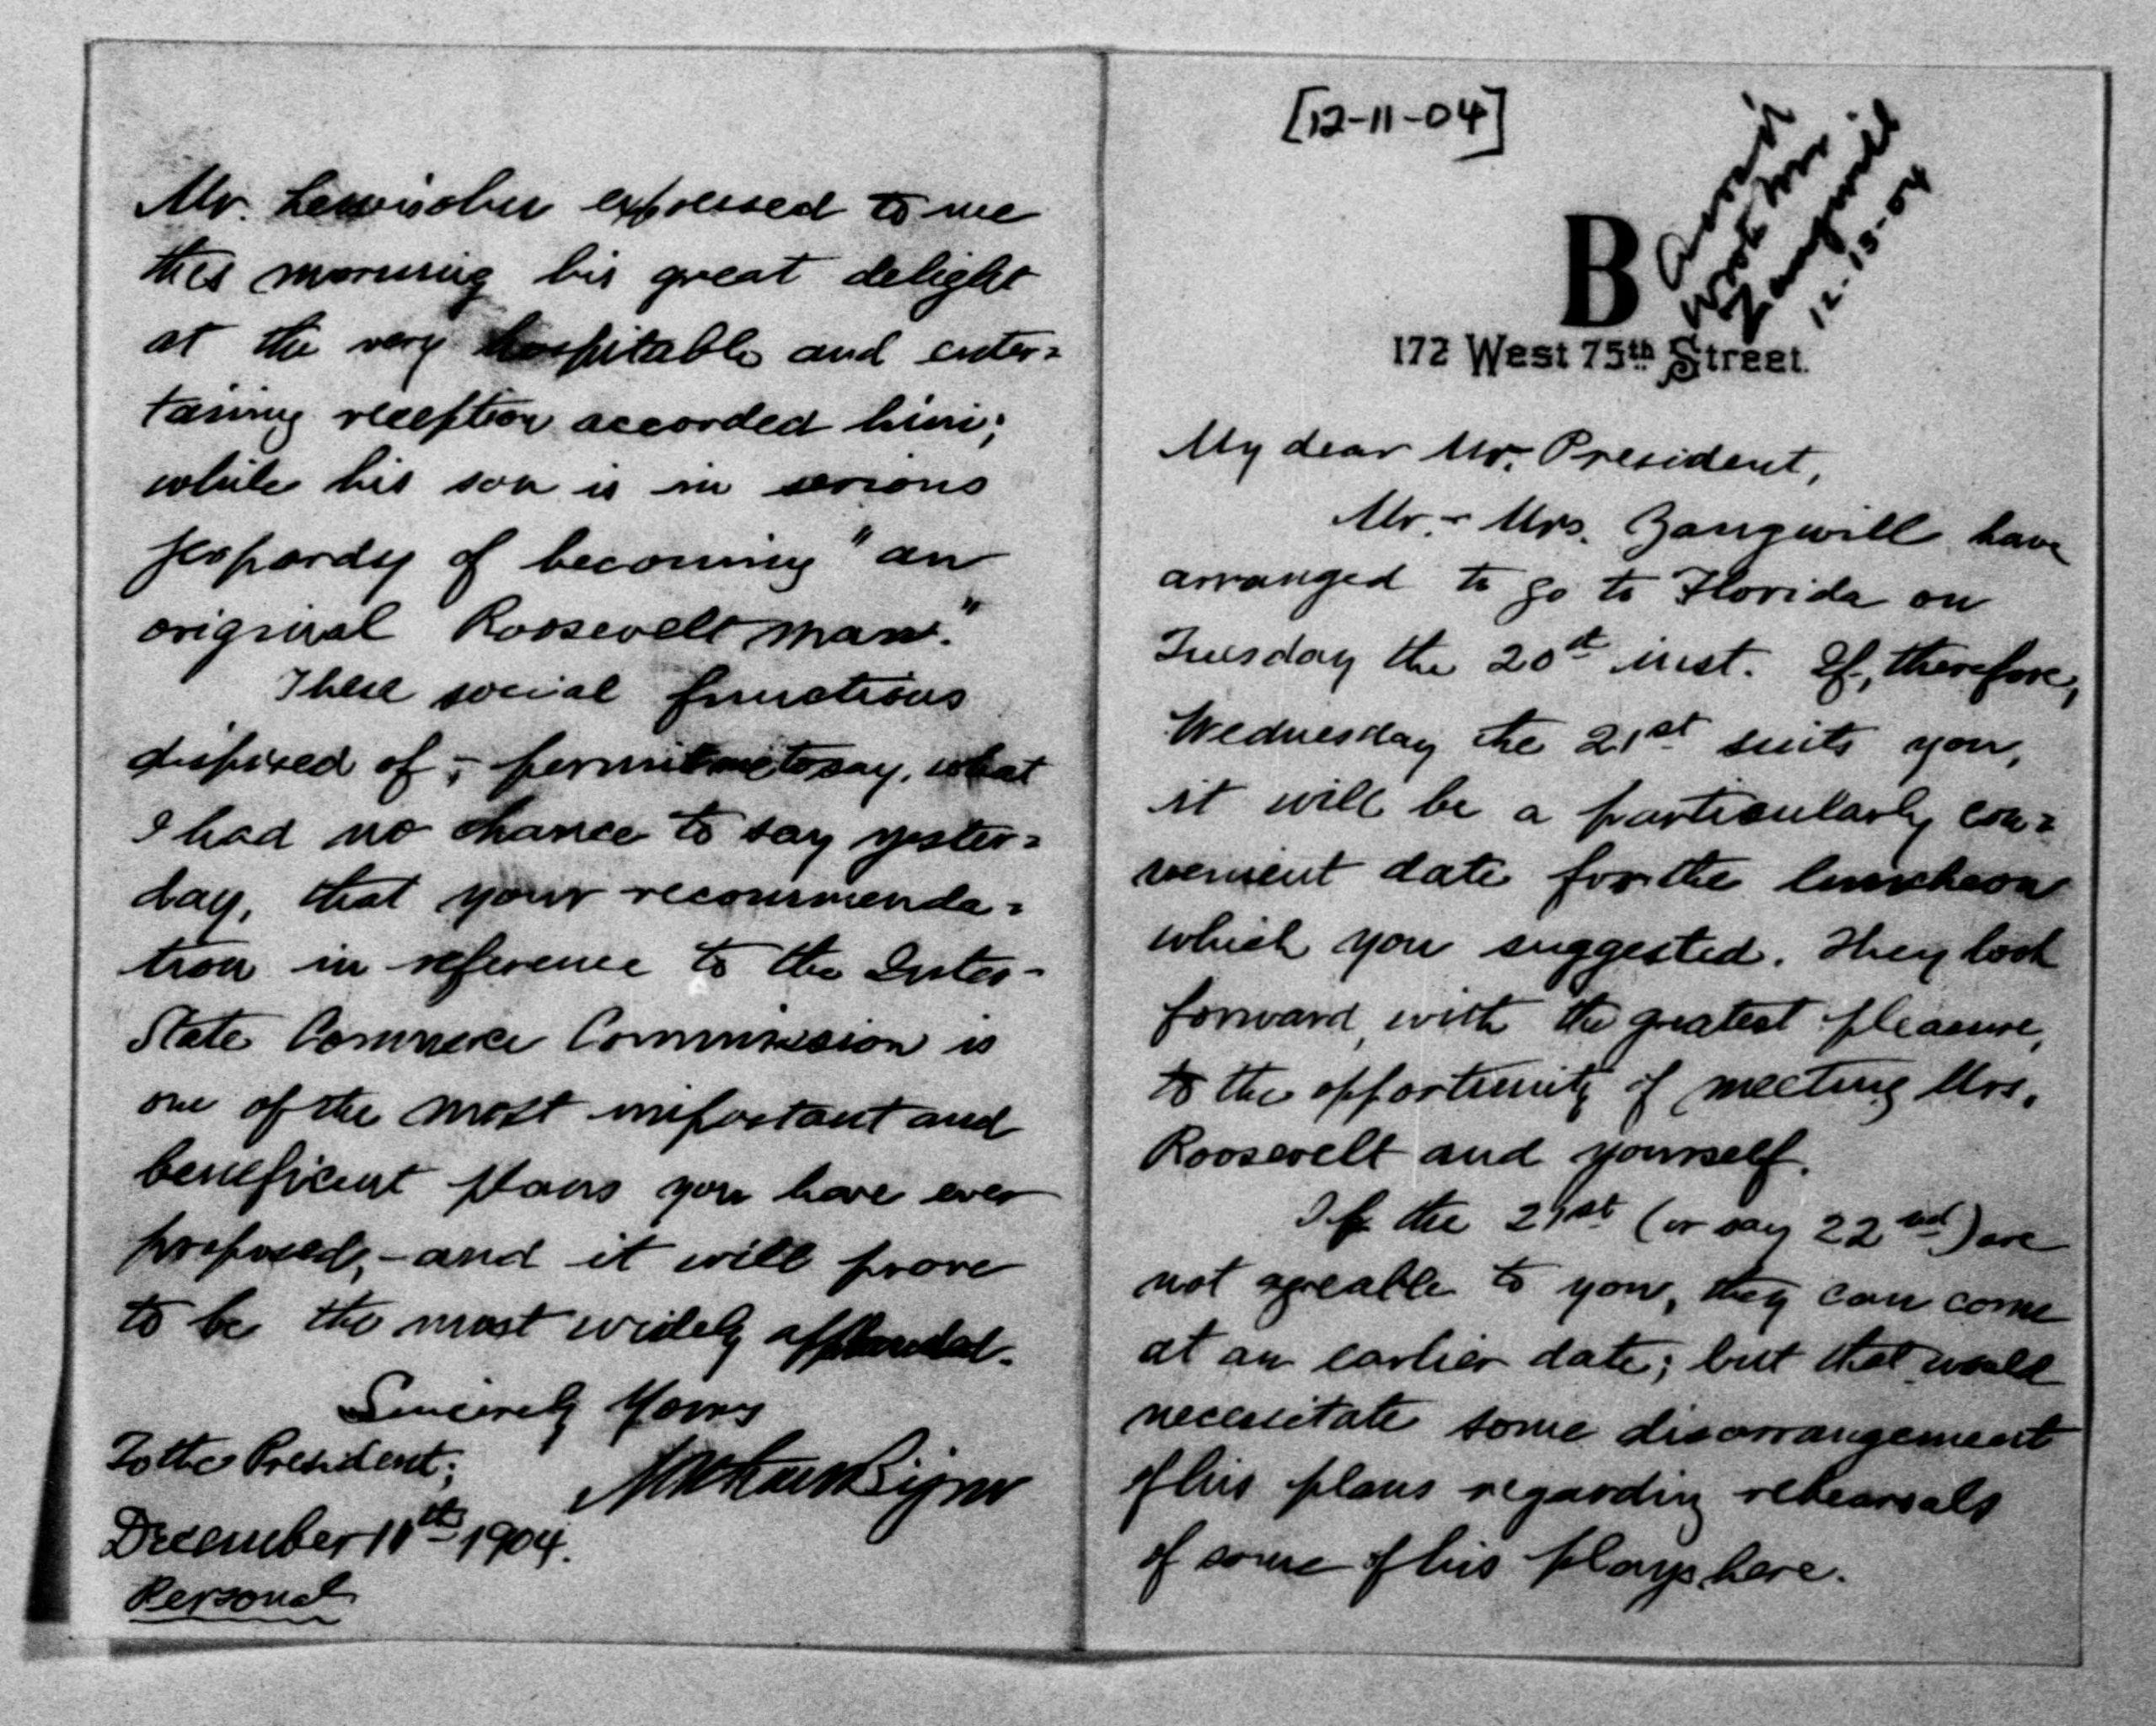 [12-11-04]
B
172 West 75th Street.
Ansd
wrote Mr
Zangwill
12-13-04
My dear Mr. President,
Mr. - Mrs. Zangwill have
arranged to go to Florida on
Tuesday the 20th inst. If, therefore,
Wednesday the 21st suits you,
it will be a particularly con=
venient date for the luncheon
which you suggested. They look
forward, with the greatest pleasure,
to the opportunity of meeting Mrs.
Roosevelt and yourself.
If the 21st (or say 22nd) are
not agreable to you, they can come
at an earlier date; but that would
necessitate some disarrangement
of his plans regarding rehearsals
of some of his plays here.
Mr. Lewisohn expressed to me
this morning his great delight
at the very hospitable and enter=
taining reception accorded him;
while his son is in serious
jeopardy of becoming "an
original Roosevelt man."
These social functions
disposed of, - permit me to say, what
I had no chance to say yester=
day, that your recommenda=
tion in reference to the Inter-
State Commerce Commission is
one of the most important and
beneficent plans you have ever
proposed, - and it will prove
to be the most widely applauded.
Sincerely Yours
Nathan Bijur
To the President;
December 11th 1904.
Personal